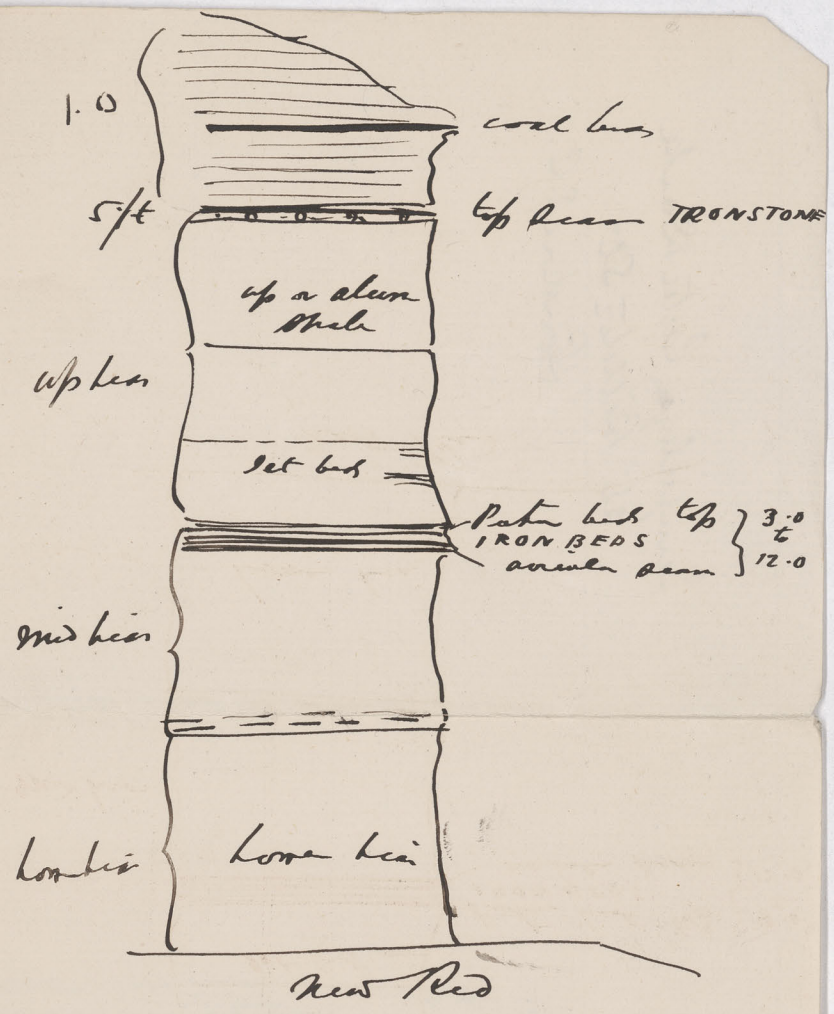 1.0
coal beds
5/t
top seam IRONSTONE
up or alum
shale
up lias
Jet beds
Pecten beds top
IRON BEDS
avicula seam
3.0
to
12.0
mid lias
Lower lias
Lower lias
New Red